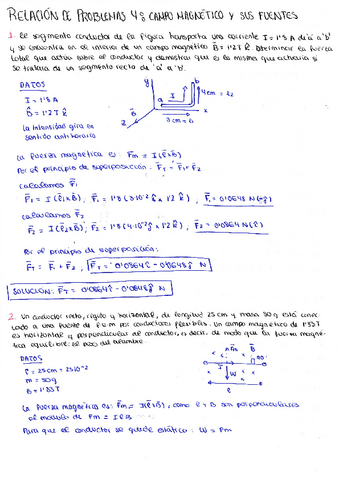 RELACIÓN DE PROBLEMAS 4: CAMPO MAGNÉTICO Y SUS FUENTES
1. El segmento conductor de la figura transporta una corriente I = 1'8 A de 'a' a 'b'
y se encuentra en el interior de un campo magnético B̄ = 1'2 T k̂. Determinar la fuerza
total que actúa sobre el conductor y demostrar que es la misma que actuaría si
se tratara de un segmento recto de 'a' a 'b'.
DATOS
I = 1'8 A
B̄ = 1'2 T k̂
la intensidad gira en
sentido antihorario
y
b
I
4cm = l2
a
3cm = l1
x
z
La fuerza magnética es: F̄m = I (l̄ x B̄)
Por el principio de superposición: F̄T = F̄1 + F̄2
calculamos F̄1
F̄1 = I (l̄1 x B̄), F̄1 = 1'8 (3·10⁻² x̂ x 1'2 k̂), F̄1 = 0'0648 N (-ĵ)
calculamos F̄2
F̄2 = I (l̄2 x B̄), F̄2 = 1'8 (4·10⁻² ĵ x 1'2 k̂), F̄2 = 0'0864 N (î)
Por el principio de superposición:
F̄T = F̄1 + F̄2, F̄T = 0'0864 î - 0'0648 ĵ N
SOLUCIÓN: F̄T = 0'0864 î - 0'0648 ĵ N
2. Un conductor recto, rígido y horizontal, de longitud 25 cm y masa 50 g está conec-
tado a una fuente de f.e.m por conductores flexibles. Un campo magnético de 1'33 T
es horizontal y perpendicular al conductor, es decir, de modo que la fuerza magné-
tica equilibre el peso del alambre.
DATOS
l = 25 cm = 25·10⁻²
m = 50 g
B = 1'33 T
F̄m
B̄
90°
I
W
l
La fuerza magnética es: F̄m = I(l̄ x B̄), como l y B son perpendiculares
el módulo de F̄m = I l B
Para que el conductor se quede estático: W = Fm